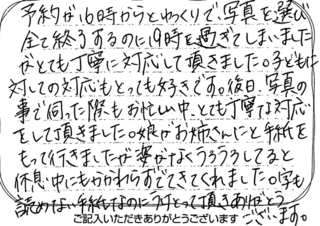 予約が16時からとゆっくりで、写真を選び
全て終了するのに19時を過ぎてしまいました
がとても丁寧に対応して頂きました。子どもに
対しての対応もとっても好きです。後日、写真の
事で伺った際もお忙しい中、とても丁寧な対応
をして頂きました。娘がお姉さんにと手紙を
もって行きましたが姿がなくうろうろしてると
休息中にもかかわらずでてきてくれました。字も
読めない手紙なのにうけとって頂きありがとう
ございます。
ご記入いただきありがとうございます